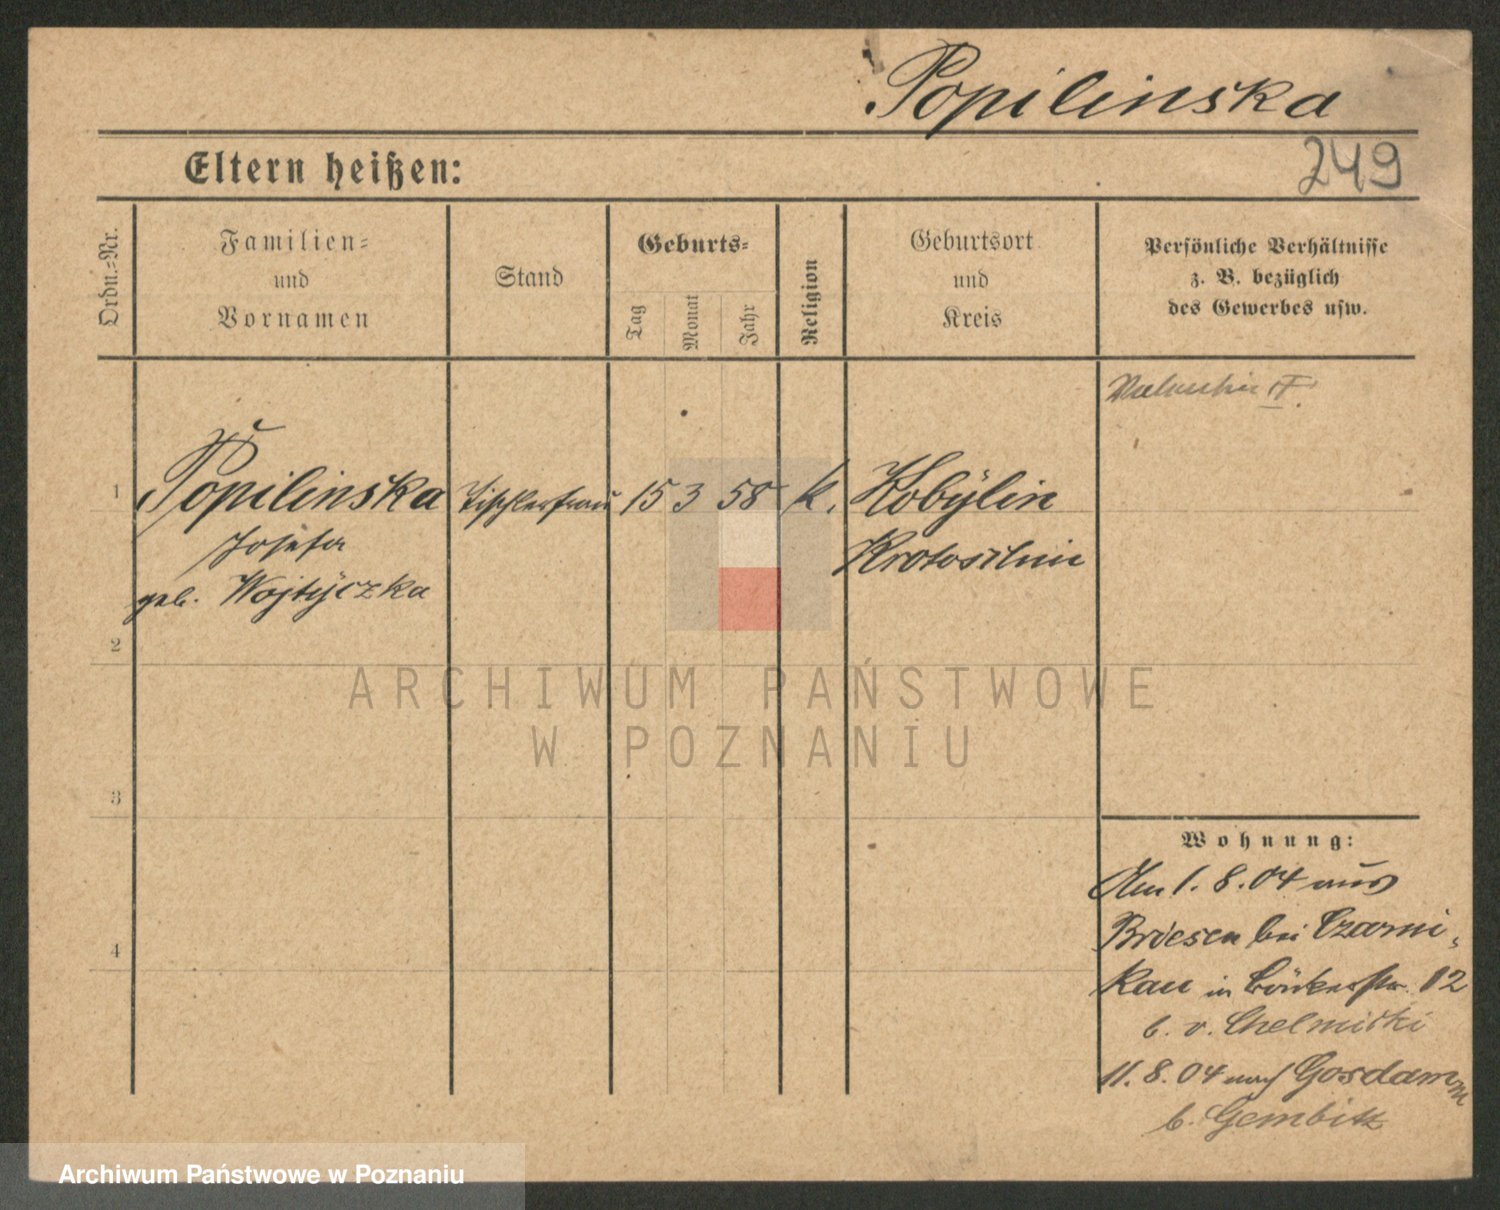 Popilinska
249
Eltern heißen:
Ordn.-Nr.
Familien-
und
Vornamen
Stand
Geburts-
Tag
Monat
Jahr
Religion
Geburtsort
und
Kreis
Persönliche Verhältnisse
z. B. bezüglich
des Gewerbes usw.
1 Popilinska Tischlerfrau 15 3 58 k. Kobylin
Josefa Krotoschin
geb. Wojtyczka
2
3
4
Wohnung:
Am 1. 8. 04 aus
Briesen bei Czarni-
kau in 12
b. v. Chelmicki
11. 8. 04 nach Gosdamm
b. Gembitz
ARCHIWUM PAŃSTWOWE
W POZNANIU
Archiwum Państwowe w Poznaniu